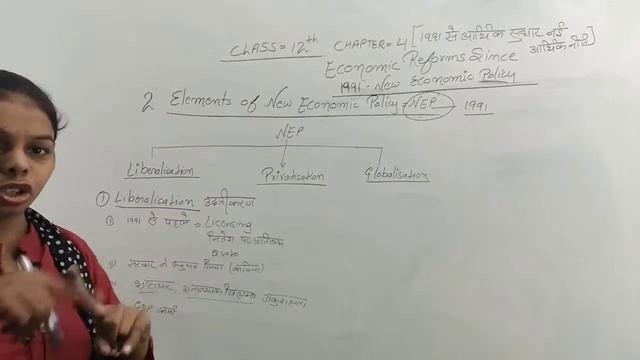 CLASS = 12th CHAPTER = 4 [1991 से आर्थिक सुधार नई
आर्थिक नीति]
Economic Reforms Since
1991 - New Economic Policy
2 Elements of New Economic Policy - NEP - 1991
NEP
Liberalisation Privatisation Globalisation
① Liberalisation उदारीकरण
1991 से पहले → Licensing
निवेश पर प्रतिबंध
सरकार ने अनुभव किया (कमियां)
भ्रष्टाचार, अनावश्यक विलम्ब अकुशलता
GDP कमी